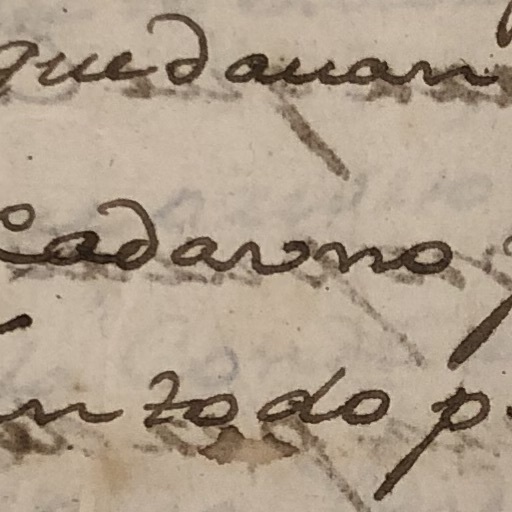 quedauan
Cada vno
en todo p